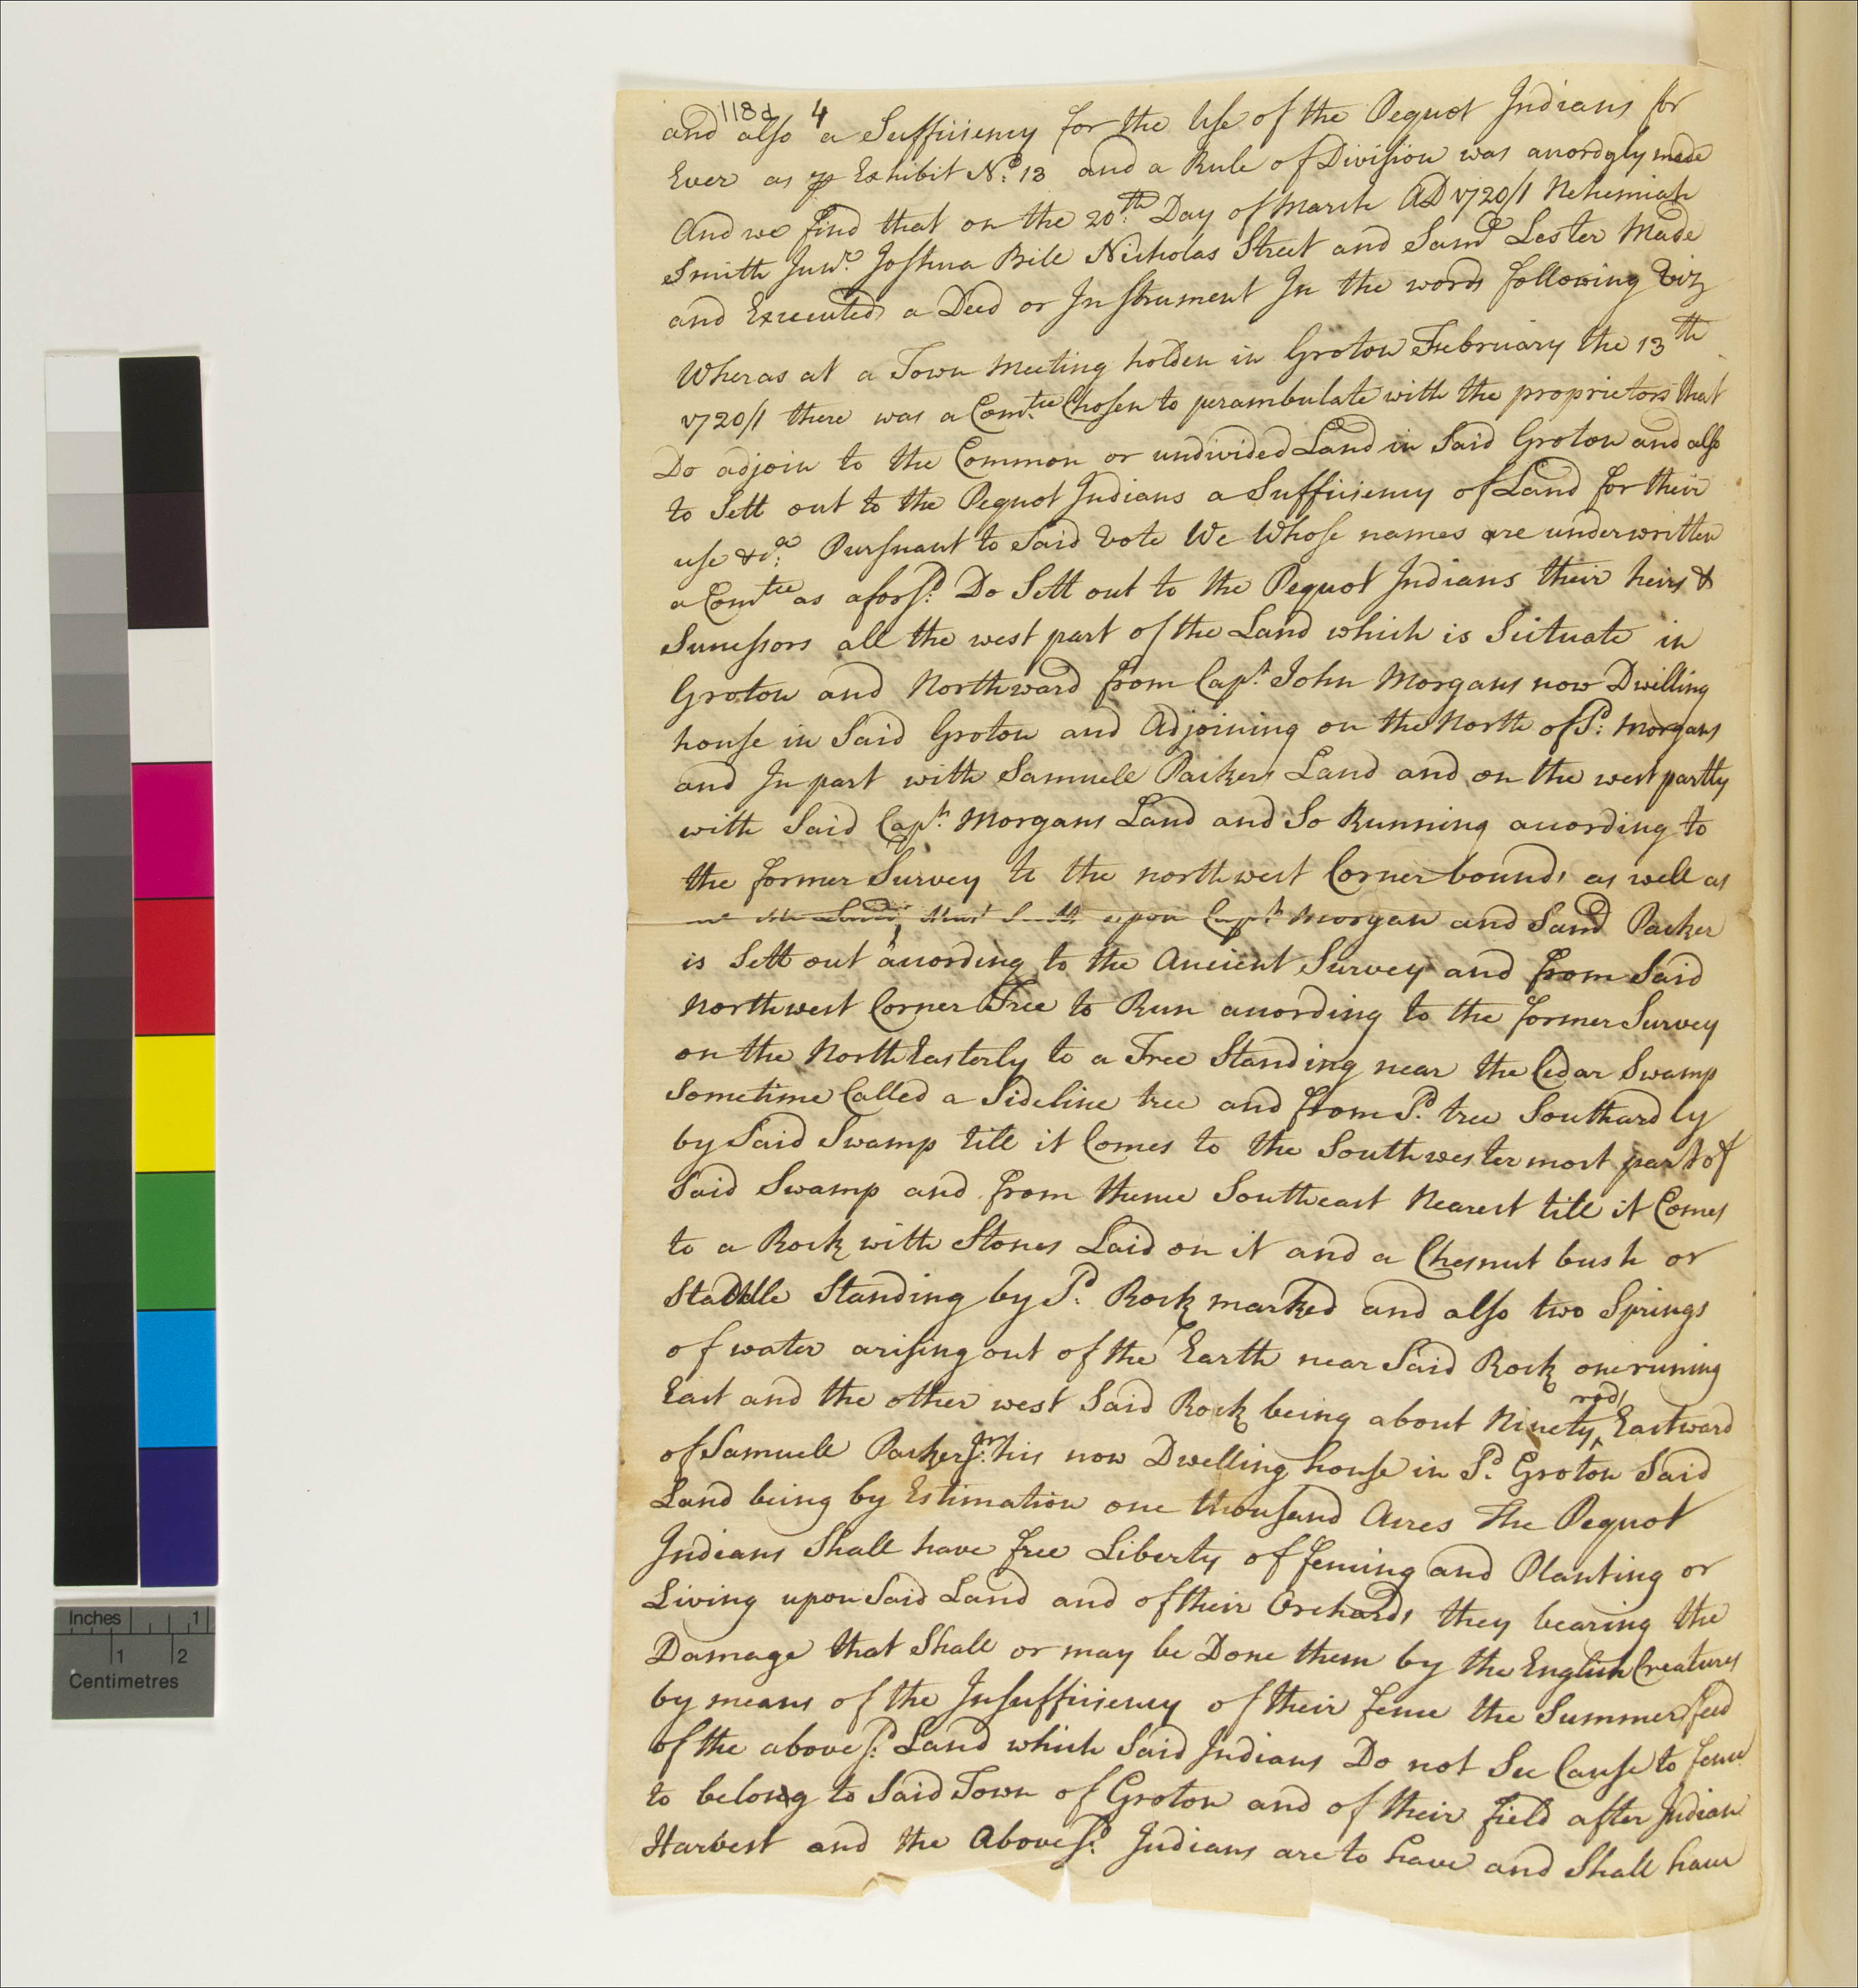 118d 4
and also a Sufficiency for the Use of the Pequot Indians for
Ever as ⅌ Exhibit No. 13 and a Rule of Division was accordgly made
And we find that on the 20.th Day of March AD 1720/1 Nehemiah
Smith Junr. Joshua Bill Nicholas Street and Samll Lester Made
and Executed a Deed or Instrument In the words following Viz
Wheras at a Town Meeting holden in Groton February the 13th
1720/1 there was a Comtee Chosen to perambulate with the proprietors that
Do adjoin to the Common or undivided Land in Said Groton and also
to Sett out to the Pequot Indians a Sufficiency of Land for their
use &ca. Pursuant to Said Vote We Whose names are underwritten
a Comtee as aforsd. Do Sett out to the Pequot Indians their heirs &
Successors all the west part of the Land which is Scituate in
Groton and Northward from Capt. John Morgans now Dwelling
house in Said Groton and Adjoining on the North of Sd. Morgans
and In part with Samuell Packers Land and on the west partly
with Said Capt. Morgans Land and So Running according to
the former Survey to the northwest Corner bounds as well as
upon Capt. Morgan and Samll Packer
is Sett out according to the Ancient Survey and from Said
Northwest Corner Tree to Run according to the former Survey
on the North Easterly to a Tree Standing near the Cedar Swamp
Sometime Called a Sideline tree and from Sd. tree Southardly
by Said Swamp till it Comes to the Southwestermost part of
Said Swamp and from thence Southeast Nearest till it Comes
to a Rock with Stones Laid on it and a Chesnut bush or
Staddle Standing by Sd. Rock marked and also two Springs
of water arising out of the Earth near Said Rock one runing
East and the other west Said Rock being about Ninety rods Eastward
of Samuell Packer Jr. his now Dwelling house in Sd. Groton Said
Land being by Estimation one thousand Acres The Pequot
Indians Shall have free Liberty of fencing and Planting or
Living upon Said Land and of their Orchards they bearing the
Damage that Shall or may be Done them by the English Creatures
by means of the Insufficiency of their fence the Summer feed
of the above sd. Land which Said Indians Do not See Cause to fence
to belong to Said Town of Groton and of their field after Indian
Harvest and the Above sd. Indians are to have and Shall have
Inches 1
1 2
Centimetres